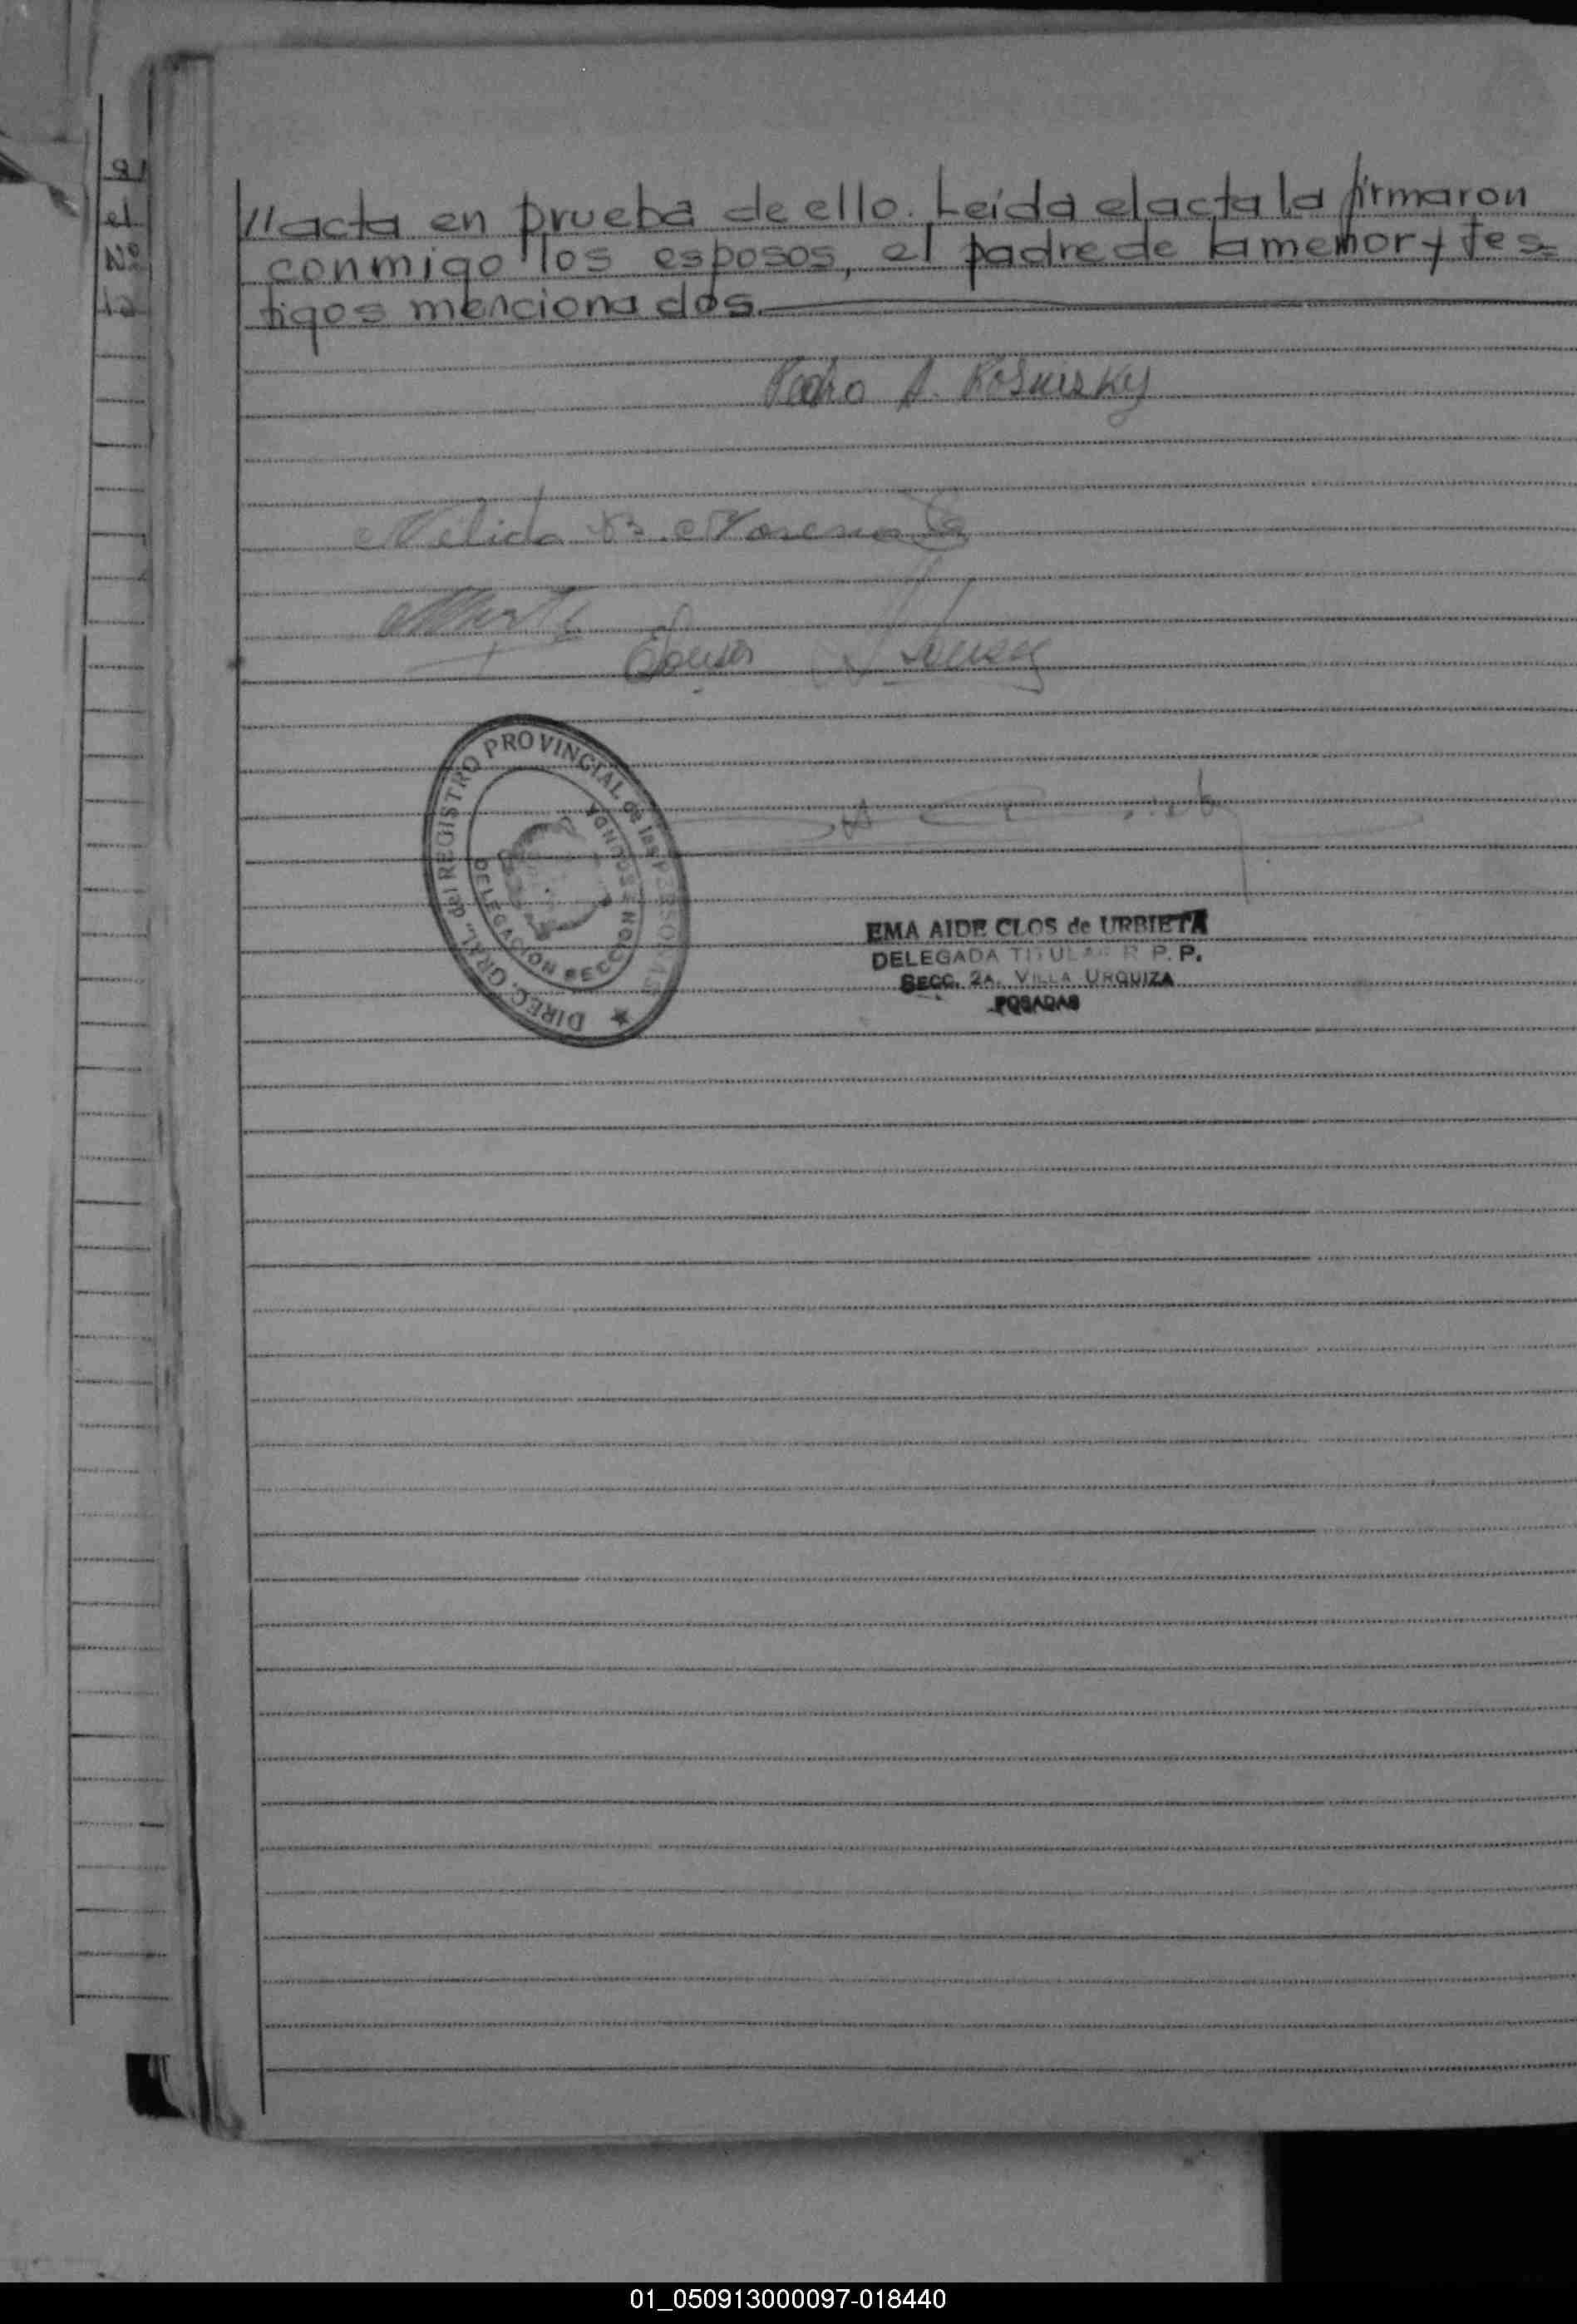 la
el
Nº
la
//acta en prueba de ello. Leída el acta la firmaron
conmigo los esposos, el padre de la menor y tes=
tigos mencionados.
Pedro A.
Nélida B.
DIREC. GRAL. del REGISTRO PROVINCIAL de las PERSONAS
DELEGACION SECCION 2 POSADAS
EMA AIDE CLOS de URBIETA
DELEGADA TITULAR R. P. P.
SECC. 2A. VILLA URQUIZA
POSADAS
01_050913000097-018440